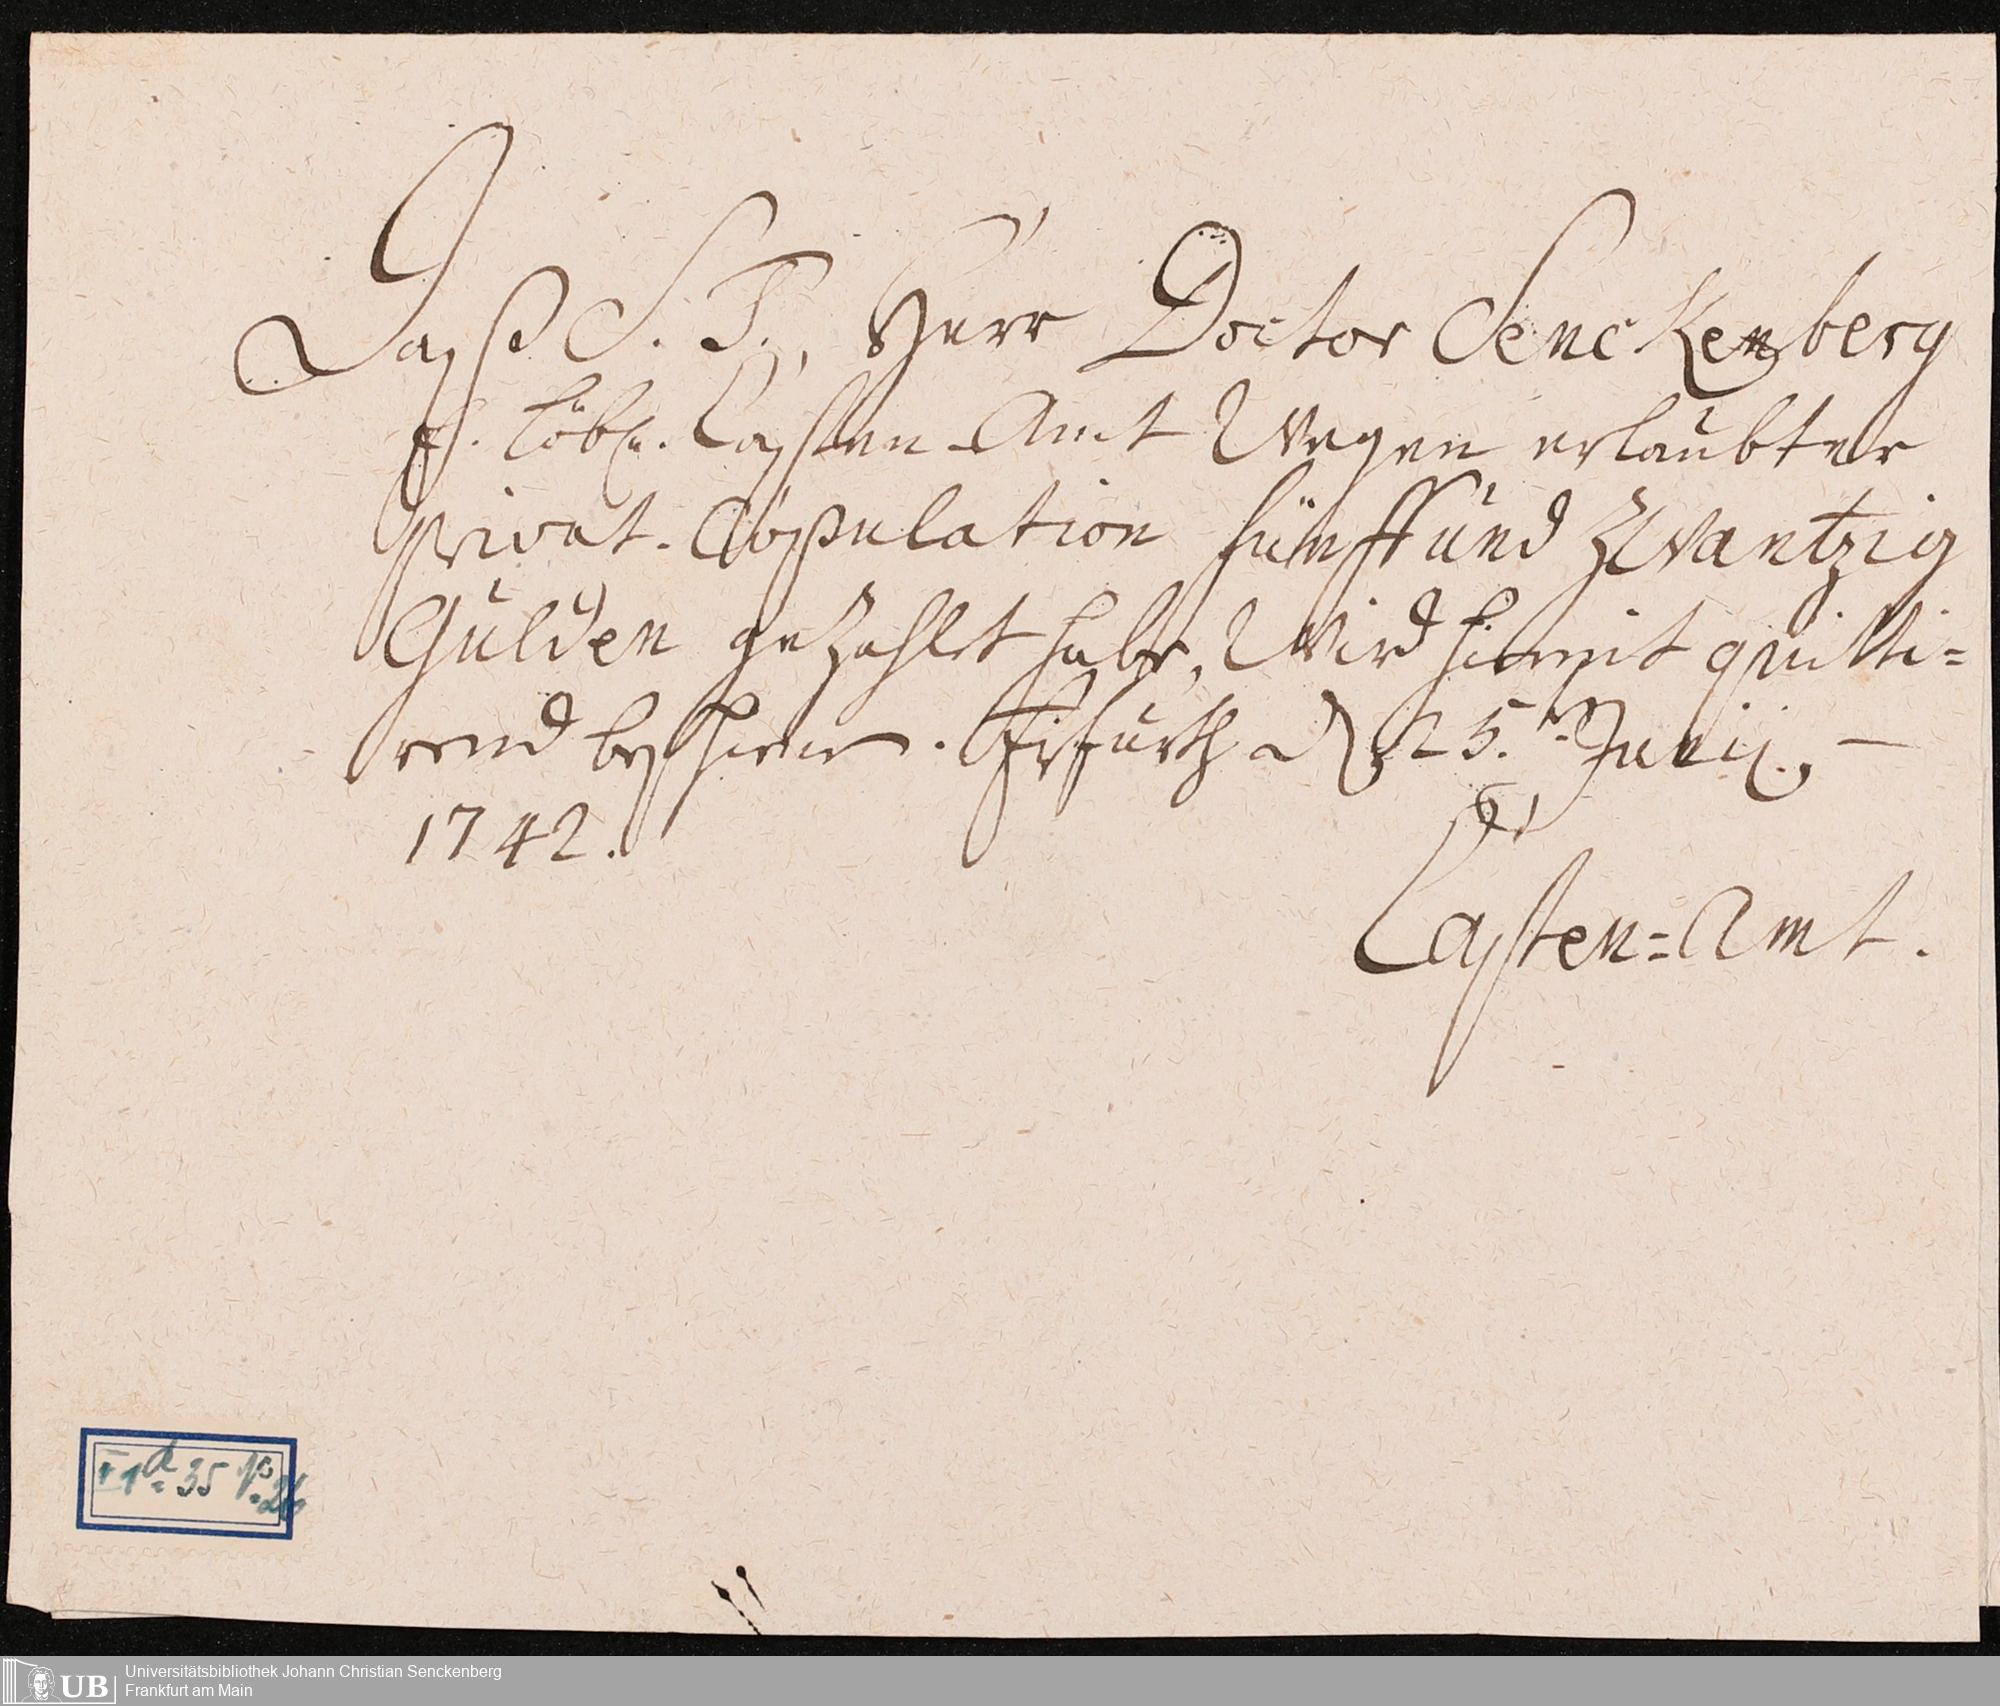 Daß S. T., Herr Doctor Senckenberg
E. Löbl. Casten-Amt Wegen erlaubter
privat-Copulation fünff und zwantzig
Gulden gezahlet habe, Wird hiemit quitti=
rend bescheinet. Erfurth d 25.ten Junij. —
1742.
Casten=Amt.
1d 35
Universitätsbibliothek Johann Christian Senckenberg
Frankfurt am Main
UB